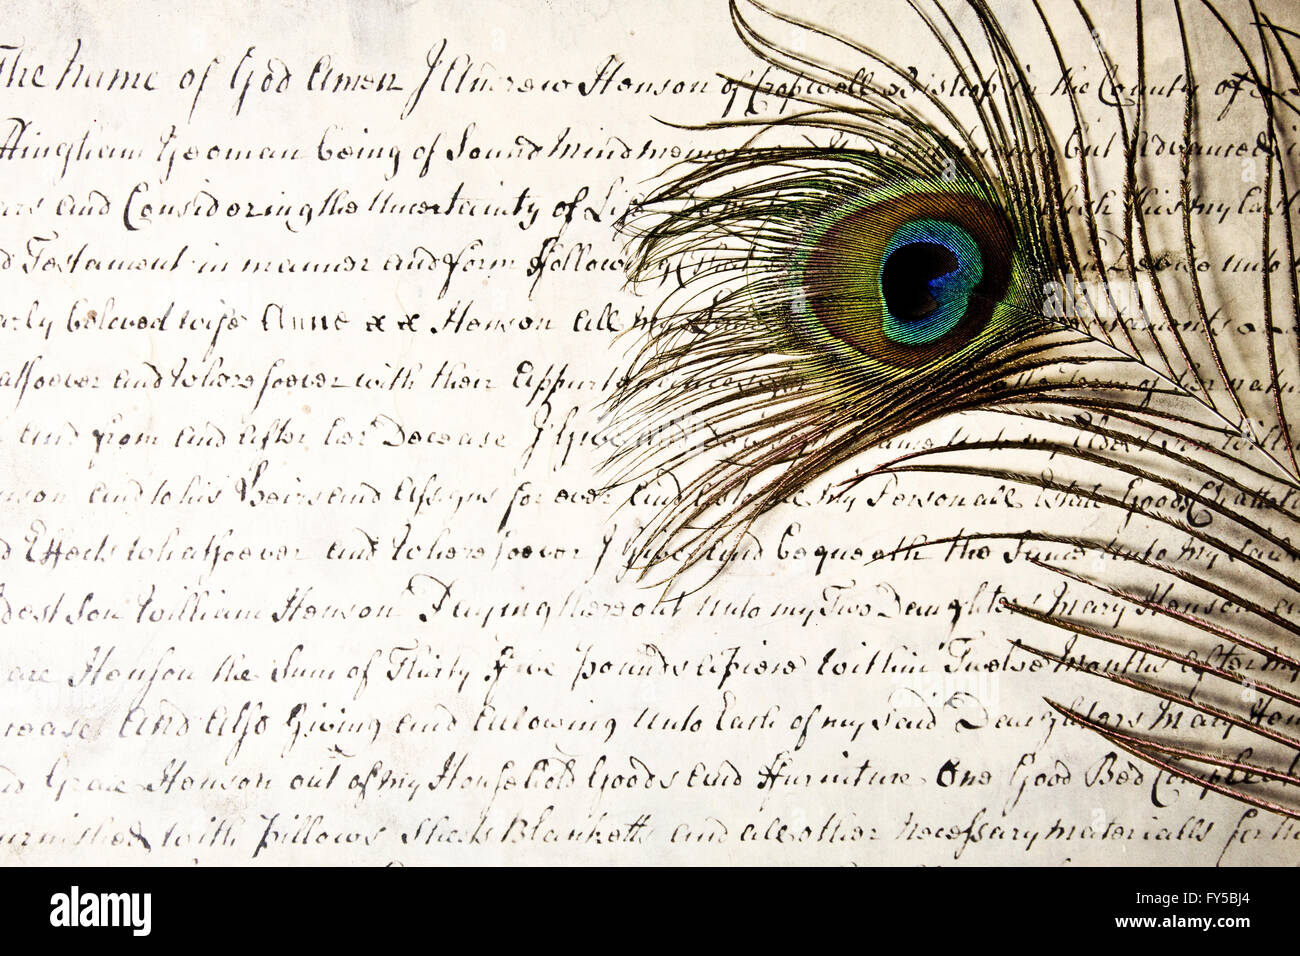 The Name of God Amen J Andrew Hanson of Cropwell Bishop in the County of
ttingham Yeoman being of Sound Mind memor but Advanced i
ars and Considering the Uncertainty of Life this my Last
d Testament in manner and form Following Unto
arly beloved wife Anne Hanson all my
atsoever and Wheresoever with their Appurtenances of her natu
and from and after her Decease J Give
nson and to his Heirs and assigns for ever and my Personall Estate Goods Chatt
d Effects Whatsoever and Wheresoever J Give and bequeath the Same Unto my said
dest Son William Hanson Paying thereout Unto my Two Daughters Mary Hanson an
ace Hanson the Sum of Thirty Five pounds apiece Within Twelve Months after my
cease and allso Giving and allowing Unto Each of my said Daughters Mary Han
nd Grace Hanson out of my Household Goods and Furniture One Good Bed Compleat
urnished with Pillows Sheets Blanketts and all other necessary materialls for
alamy
alamy
alamy
alamy
Image ID: FY5BJ4
www.alamy.com